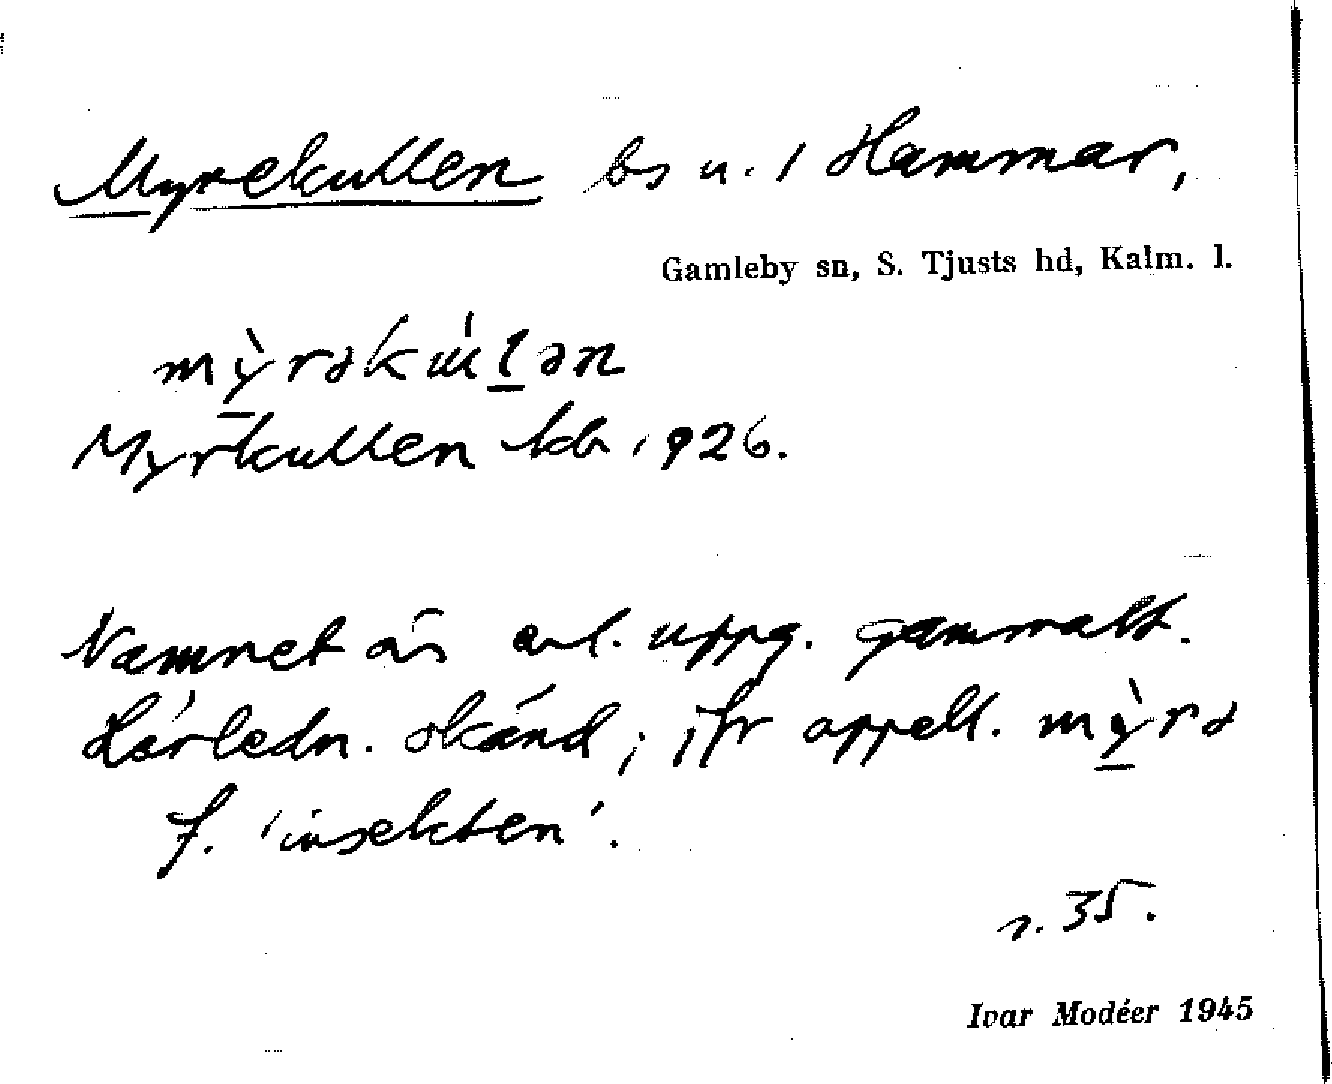 Myrekullen bs u. 1 Hammar,
Gamleby sn, S. Tjusts hd, Kalm. l.
mỳrəkúlən
Myrkullen kb 1926.
Namnet är enl. uppg. gammalt.
Härledn. okänd; jfr appell. mỳrə
f. 'insekten'.
s. 35.
Ivar Modéer 1945